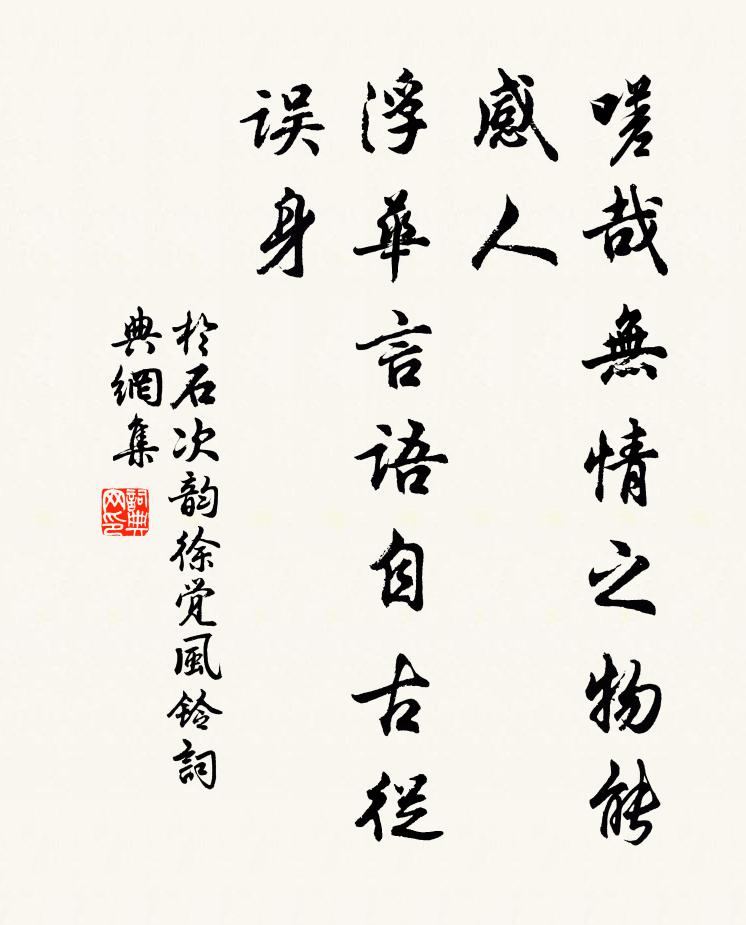 嗟哉無情之物能
感人
浮華言語自古從
误身
於石次韵徐觉風铃詞
典網集
詞典
网印